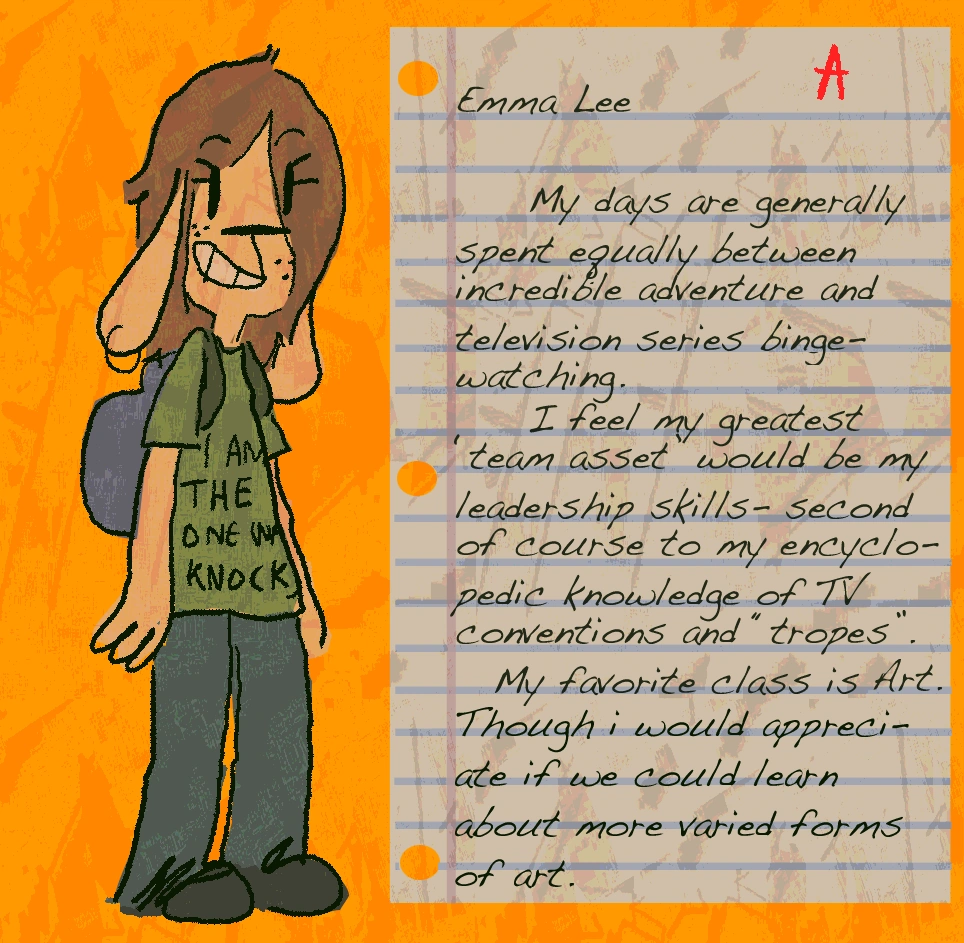 I AM
THE
ONE W
KNOCK
A
Emma Lee
My days are generally
spent equally between
incredible adventure and
television series binge-
watching.
I feel my greatest
"team asset" would be my
leadership skills- second
of course to my encyclo-
pedic knowledge of TV
conventions and "tropes".
My favorite class is Art.
Though i would appreci-
ate if we could learn
about more varied forms
of art.